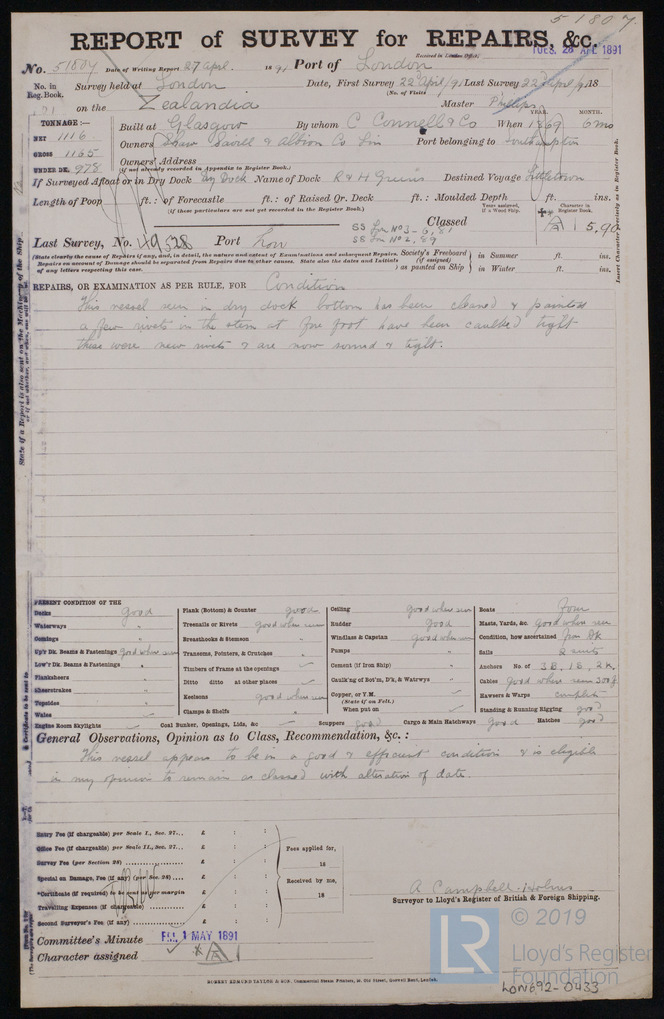 51807
REPORT of SURVEY for REPAIRS, &c.
Received in London Office,
TUES. 28 APL 1891
No. 51807 Date of Writing Report 27 April. 1891 Port of London
No. in Reg. Book. Survey held at London Date, First Survey 22 April /91 Last Survey 22 April /91 18
(No. of Visits)
on the Zealandia Master Phillips
YEAR. MONTH.
TONNAGE:— Built at Glasgow By whom C Connell & Co When 1869 6mo
NET 1116 Owners Shaw Savill & Albion Co Lim Port belonging to Southampton
GROSS 1165 Owners' Address
(if not already recorded in Appendix to Register Book.)
UNDER DK. 978
If Surveyed Afloat or in Dry Dock Dry Dock Name of Dock R & H Green's Destined Voyage
Length of Poop ft.: of Forecastle ft.: of Raised Qr. Deck ft.: Moulded Depth ft. ins.
(if these particulars are not yet recorded in the Register Book.)
Years assigned, if a Wood Ship. Character in Register Book.
SS Lon No 3 - 6,81
SS Lon No 2, 89
Classed A1 5,90
Last Survey, No. 49528 Port Lon
(State clearly the cause of Repairs if any, and, in detail, the nature and extent of Examinations and subsequent Repairs. Repairs on account of Damage should be separated from Repairs due to other causes. State also the dates and initials of any letters respecting this case.
Society's Freeboard (if assigned) as painted on Ship in Summer ft. ins.
in Winter ft. ins.
REPAIRS, OR EXAMINATION AS PER RULE, FOR Condition
This vessel seen in dry dock bottom has been cleaned & painted
a few rivets on the stem at fore foot have been caulked tight
these were new rivets & are now sound & tight.
PRESENT CONDITION OF THE
Decks good
Waterways "
Comings "
Up'r Dk. Beams & Fastenings good where seen
Low'r Dk. Beams & Fastenings "
Planksheers "
Sheerstrakes "
Topsides "
Wales "
Engine Room Skylights
Plank (Bottom) & Counter good
Treenails or Rivets good where seen
Breasthooks & Stemson "
Transoms, Pointers, & Crutches "
Timbers of Frame at the openings
Ditto ditto at other places
Keelsons good where seen
Clamps & Shelfs
Coal Bunker, Openings, Lids, &c
Ceiling good where seen
Rudder good
Windlass & Capstan good where seen
Pumps "
Cement (if Iron Ship)
Caulk'ng of Bot'm, D'k, & Watrwys
Copper, or Y.M. (State if on Felt.)
When put on
Scuppers good
Boats Four
Masts, Yards, &c. good where seen
Condition, how ascertained from Dk
Sails 2 suits
Anchors No. of 3B, 1S, 2K,
Cables good where seen 300 f
Hawsers & Warps complete
Standing & Running Rigging good
Cargo & Main Hatchways good Hatches good
General Observations, Opinion as to Class, Recommendation, &c.:
This vessel appears to be in a good & efficient condition & is eligible
in my opinion to remain as classed with alteration of date.
Entry Fee (if chargeable) per Scale I., Sec. 27... £ : :
Office Fee (if chargeable) per Scale II., Sec. 27... £ : :
Survey Fee (per Section 28) £ : :
Special on Damage, Fee (if any) (per Sec. 28)... £ : :
*Certificate (if required) to be sent as per margin £ : :
Travelling Expenses (if chargeable) £ : :
Second Surveyor's Fee (if any) £ : :
Fees applied for,
18
Received by me,
18
A Campbell Holms
Surveyor to Lloyd's Register of British & Foreign Shipping.
Committee's Minute FRI. 1 MAY 1891
Character assigned A1
ROBERT EDMUND TAYLOR & SON, Commercial Steam Printers, 19, Old Street, Goswell Road, London.
LR
© 2019
Lloyd's Register
Foundation
LON692-0433